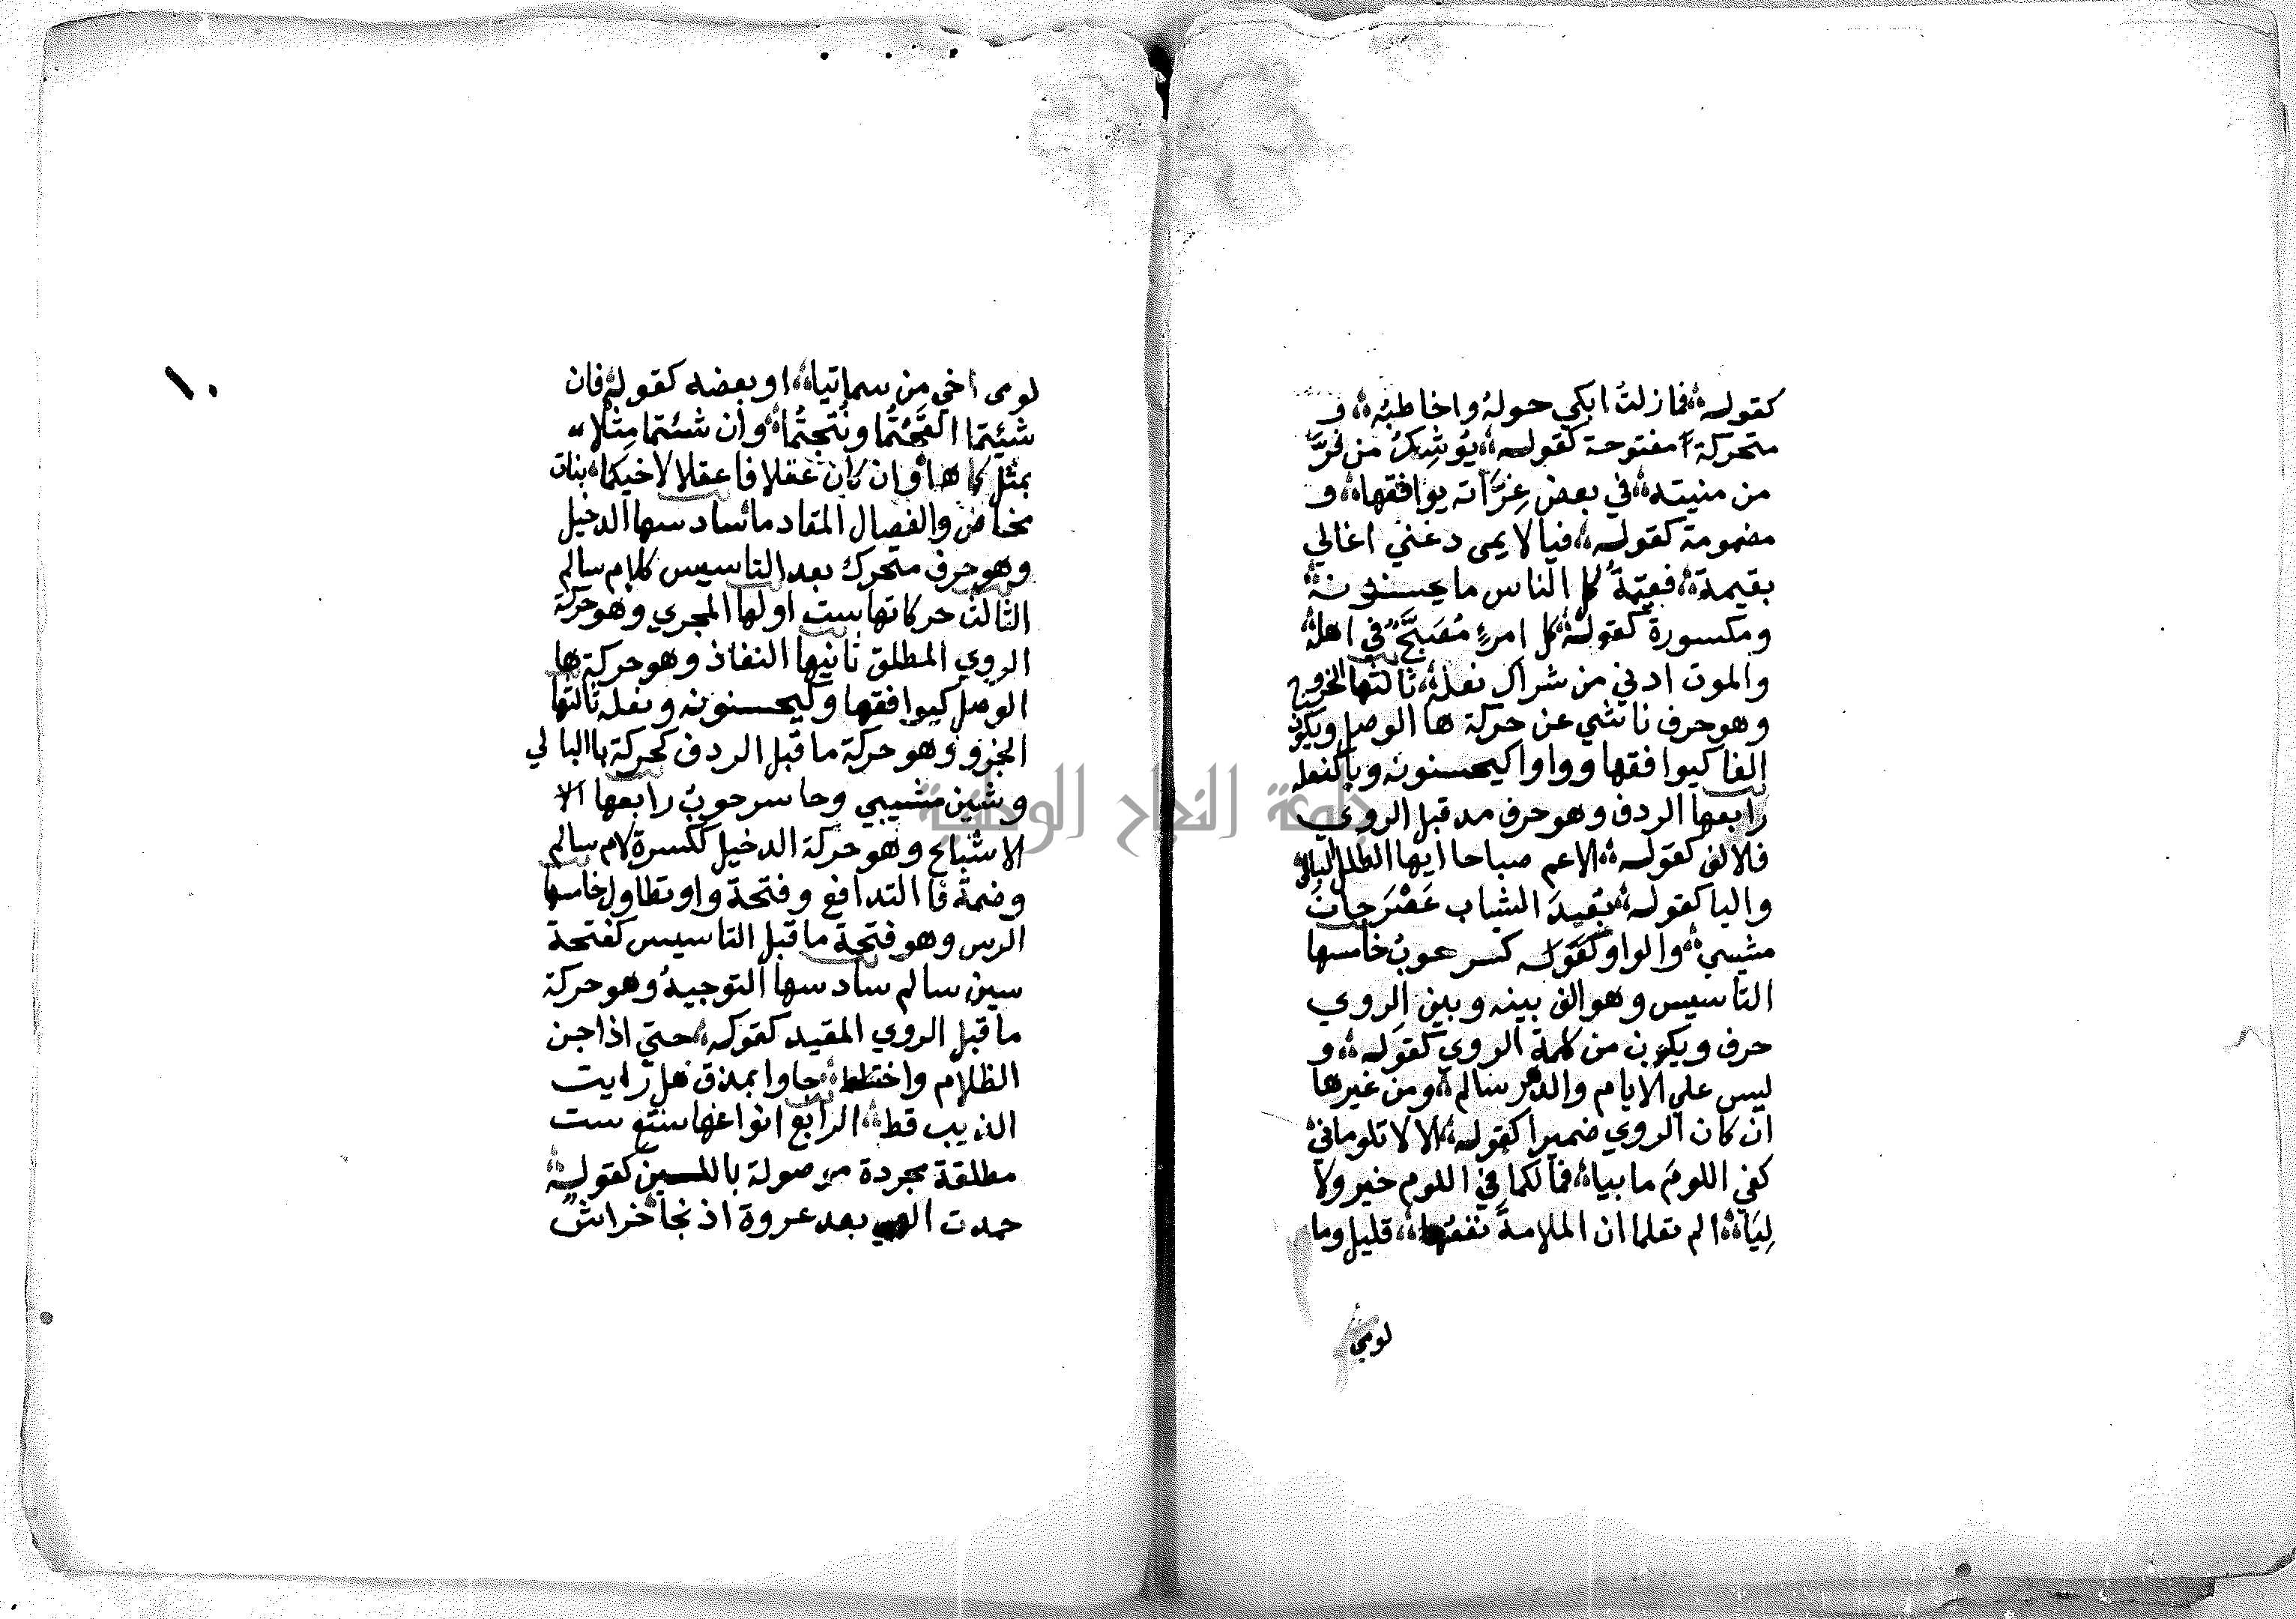 كقوله فما زلت ابكي حوله واخاطبه و
متحركة مفتوحة كقوله يوشك من فرّ
من منيته في بعض غرّاته يوافقها و
مضمومة كقوله فيا لايمى دعني اغالي
بقيمة فقيمة كل الناس ما يحسنونه
ومكسورة كقوله كل امرءٍ مُصَبَّح في اهله
والموت ادني من شراك نعله ثالثها الخروج
وهو حرف ناشي عن حركة ها الوصل ويكون
الفا كيوافقها وواوا كيحسنونه ويا كنعله
رابعها الردف وهو حرف مد قبل الروي
فالالف كقوله الاعم صباحا ايها الطلل البالى
واليا كقوله بُعَيدَ الشباب عَصْرَ حانَ
مشيبي والواو كقوله كسرحوبُ خامسها
التاسيس وهو الف بينه وبين الروي
حرف ويكون من كلمة الروي كقوله و
ليس علي الايام والدهر سالم ومن غيرها
ان كان الروي ضميرا كقوله الا لا تلوماني
كفي اللومَ ما بيا فما لكما في اللوم خير ولا
لِيَا الم تعلما ان الملامةَ نفعُها قليل وما
لومي
جامعة النجاح الوطنية
١٠
لومى اخي من سماتيا او بعضه كقوله فان
شيئتما القحتُما ونُتجتُما وان شئتما مِثلا
بمثل كما هما وان كان عقلا فاعقلا لاخيكما بنات
مخاض والفصال المقاد ما سادسها الدخيل
وهو حرف متحرك بعد التاسيس كلام سالم
الثالث حركاتها ست اولها المجري وهو حركة
الروي المطلق ثانيها النفاذ وهو حركة ها
الوصل كيوافقها وكيحسنونه ونعله ثالثها
الحذو وهو حركة ما قبل الردف كحركة با البالي
وشين مشيبي وحا سرحوبُ رابعها
الاشباع وهو حركة الدخيل ككسرة لام سالم
وضمة فا التدافع وفتحة واو تطاول خامسها
الرس وهو فتحة ما قبل التاسيس كفتحة
سين سالم سادسها التوجيه وهو حركة
ما قبل الروي المقيد كقوله حتي اذا جن
الظلام واختلط جاوا بمذق هل رايت
الذيب قط الرابع انواعها تسع ست
مطلقة مجردة موصولة باللين كقوله
حمدت الهي بعد عروة اذ نجا خراش